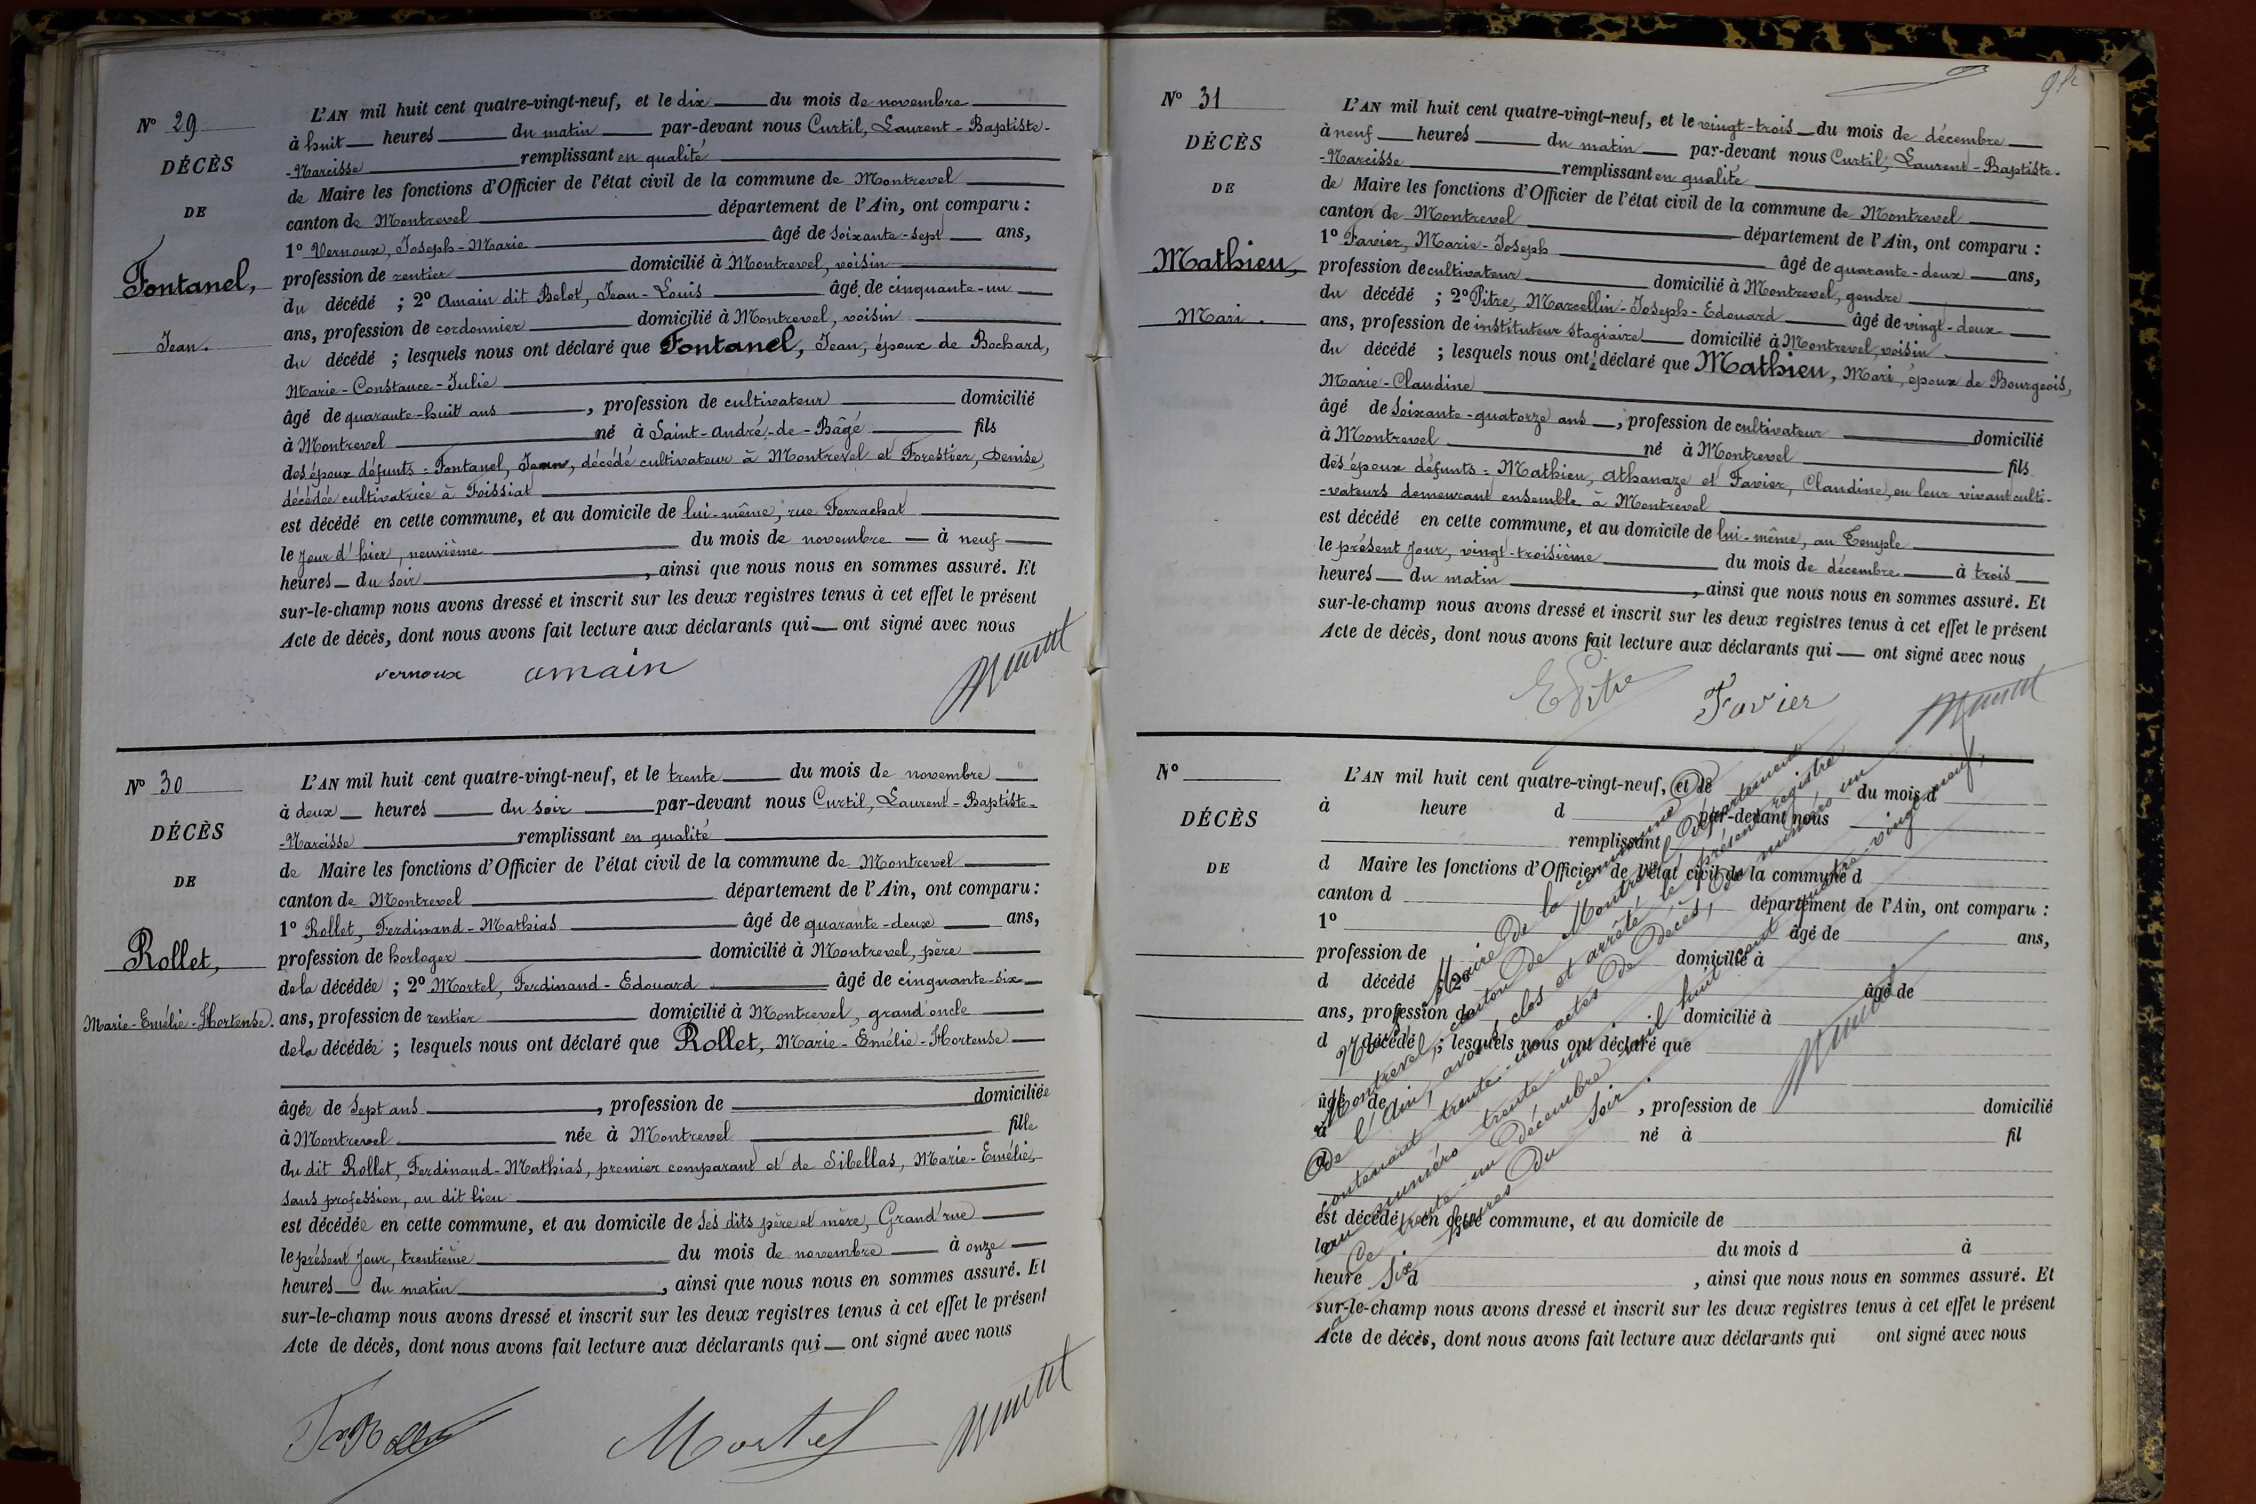 N° 29
DÉCÈS
DE
Fontanel,
Jean.
L'AN mil huit cent quatre-vingt-neuf, et le dix du mois de novembre
à huit heures du matin par-devant nous Curtil, Laurent-Baptiste-
-Narcisse remplissant en qualité
de Maire les fonctions d'Officier de l'état civil de la commune de Montrevel
canton de Montrevel département de l'Ain, ont comparu :
1° Vernoux, Joseph-Marie âgé de soixante-sept ans,
profession de rentier domicilié à Montrevel, voisin
du décédé ; 2° Amain dit Belot, Jean-Louis âgé de cinquante-un
ans, profession de cordonnier domicilié à Montrevel, voisin
du décédé ; lesquels nous ont déclaré que Fontanel, Jean, époux de Bochard,
Marie-Constance-Julie
âgé de quarante-huit ans, profession de cultivateur domicilié
à Montrevel né à Saint-André-de-Bâgé fils
des époux défunts = Fontanel, Jean, décédé cultivateur à Montrevel et Forestier, Denise,
décédée cultivatrice à Foissiat
est décédé en cette commune, et au domicile de lui-même, rue Ferrachat
le jour d'hier, neuvième du mois de novembre à neuf
heures du soir, ainsi que nous nous en sommes assuré. Et
sur-le-champ nous avons dressé et inscrit sur les deux registres tenus à cet effet le présent
Acte de décès, dont nous avons fait lecture aux déclarants qui ont signé avec nous
vernoux amain
N° 30
DÉCÈS
DE
Rollet,
Marie-Emélie-Hortense.
L'AN mil huit cent quatre-vingt-neuf, et le trente du mois de novembre
à deux heures du soir par-devant nous Curtil, Laurent-Baptiste-
-Narcisse remplissant en qualité
de Maire les fonctions d'Officier de l'état civil de la commune de Montrevel
canton de Montrevel département de l'Ain, ont comparu :
1° Rollet, Ferdinand-Mathias âgé de quarante-deux ans,
profession de horloger domicilié à Montrevel, père
de la décédée ; 2° Mortel, Ferdinand-Edouard âgé de cinquante-six
ans, profession de rentier domicilié à Montrevel, grand'oncle
de la décédée ; lesquels nous ont déclaré que Rollet, Marie-Emélie-Hortense
âgée de sept ans, profession de domiciliée
à Montrevel née à Montrevel fille
du dit Rollet, Ferdinand-Mathias, premier comparant et de Sibellas, Marie-Emélie,
sans profession, au dit lieu
est décédée en cette commune, et au domicile de ses dits père et mère, Grand'rue
le présent jour, trentième du mois de novembre à onze
heures du matin, ainsi que nous nous en sommes assuré. Et
sur-le-champ nous avons dressé et inscrit sur les deux registres tenus à cet effet le présent
Acte de décès, dont nous avons fait lecture aux déclarants qui ont signé avec nous
Mortel
N° 31
DÉCÈS
DE
Mathieu,
Mari.
L'AN mil huit cent quatre-vingt-neuf, et le vingt-trois du mois de décembre
à neuf heures du matin par-devant nous Curtil, Laurent-Baptiste-
-Narcisse remplissant en qualité
de Maire les fonctions d'Officier de l'état civil de la commune de Montrevel
canton de Montrevel département de l'Ain, ont comparu :
1° Favier, Marie-Joseph âgé de quarante-deux ans,
profession de cultivateur domicilié à Montrevel, gendre
du décédé ; 2° Pitre, Marcellin-Joseph-Edouard âgé de vingt-deux
ans, profession de instituteur stagiaire domicilié à Montrevel, voisin
du décédé ; lesquels nous ont déclaré que Mathieu, Mari, époux de Bourgeois,
Marie-Claudine
âgé de soixante-quatorze ans, profession de cultivateur domicilié
à Montrevel né à Montrevel fils
des époux défunts = Mathieu, Athanaze et Favier, Claudine, en leur vivant culti-
-vateurs demeurant ensemble à Montrevel
est décédé en cette commune, et au domicile de lui-même, au Temple
le présent jour, vingt-troisième du mois de décembre à trois
heures du matin, ainsi que nous nous en sommes assuré. Et
sur-le-champ nous avons dressé et inscrit sur les deux registres tenus à cet effet le présent
Acte de décès, dont nous avons fait lecture aux déclarants qui ont signé avec nous
E Pitre Favier
N°
DÉCÈS
DE
L'AN mil huit cent quatre-vingt-neuf, et le du mois d
à heure d par-devant nous
remplissant
d Maire les fonctions d'Officier de l'état civil de la commune d
canton d département de l'Ain, ont comparu :
1° âgé de ans,
profession de domicilié à
d décédé ; 2° âgé de
ans, profession de domicilié à
d décédé ; lesquels nous ont déclaré que
âgé de , profession de domicilié
à né à fil
d
est décédé en cette commune, et au domicile de
le du mois d à
heure d , ainsi que nous nous en sommes assuré. Et
sur-le-champ nous avons dressé et inscrit sur les deux registres tenus à cet effet le présent
Acte de décès, dont nous avons fait lecture aux déclarants qui ont signé avec nous
Nous, Maire de la commune de
Montrevel, canton de Montrevel, département
de l'Ain, avons clos et arrêté le présent registre
contenant trente-un actes de décès, du numéro un
au numéro trente-un.
Ce trente-un décembre mil huit cent quatre-vingt-neuf,
à six heures du soir.